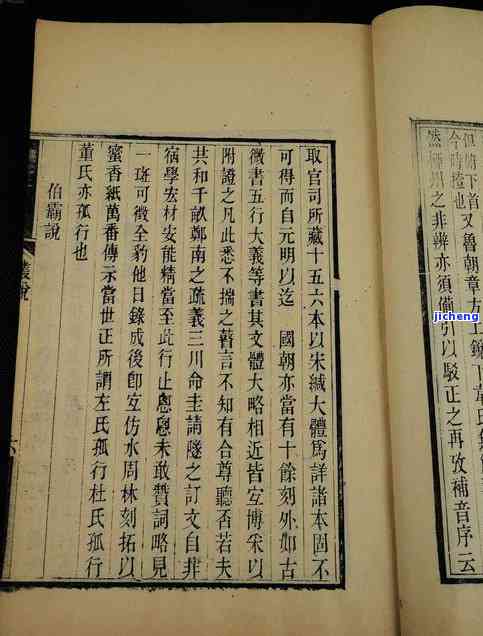 今時撎也
之非辨亦須備引以駁正之再攷補音序云
取官司所藏十五六本以宋緘大體爲詳諸本固不
可得而自元明以迄 國朝亦當有十餘刻外如古
微書五行大義等書其文體大略相近皆宜博采以
附證之凡此悉不揣之瞽言不知有合尊聽否若夫
共和千畝鄭南之疏義三川命圭請隧之訂文自非
宿學宏材安能精當至此行止悤悤未敢贊詞略見
一斑可徵全豹他日錄成後卽宜仿水周林刻拓以
蜜香紙萬番傳示當世正所謂左氏孤行杜氏孤行
董氏亦孤行也
伯霸說
叢說
jicheng